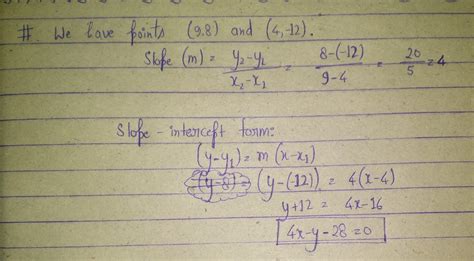 # We have points (9.8) and (4,-12).
Slope (m) = y₂-y₁/x₂-x₁ = 8-(-12)/9-4 = 20/5 = 4
Slope - intercept form:
(y-y₁) = m (x-x₁)
(y-8) = (y-(-12)) = 4(x-4)
y+12 = 4x-16
4x-y-28=0